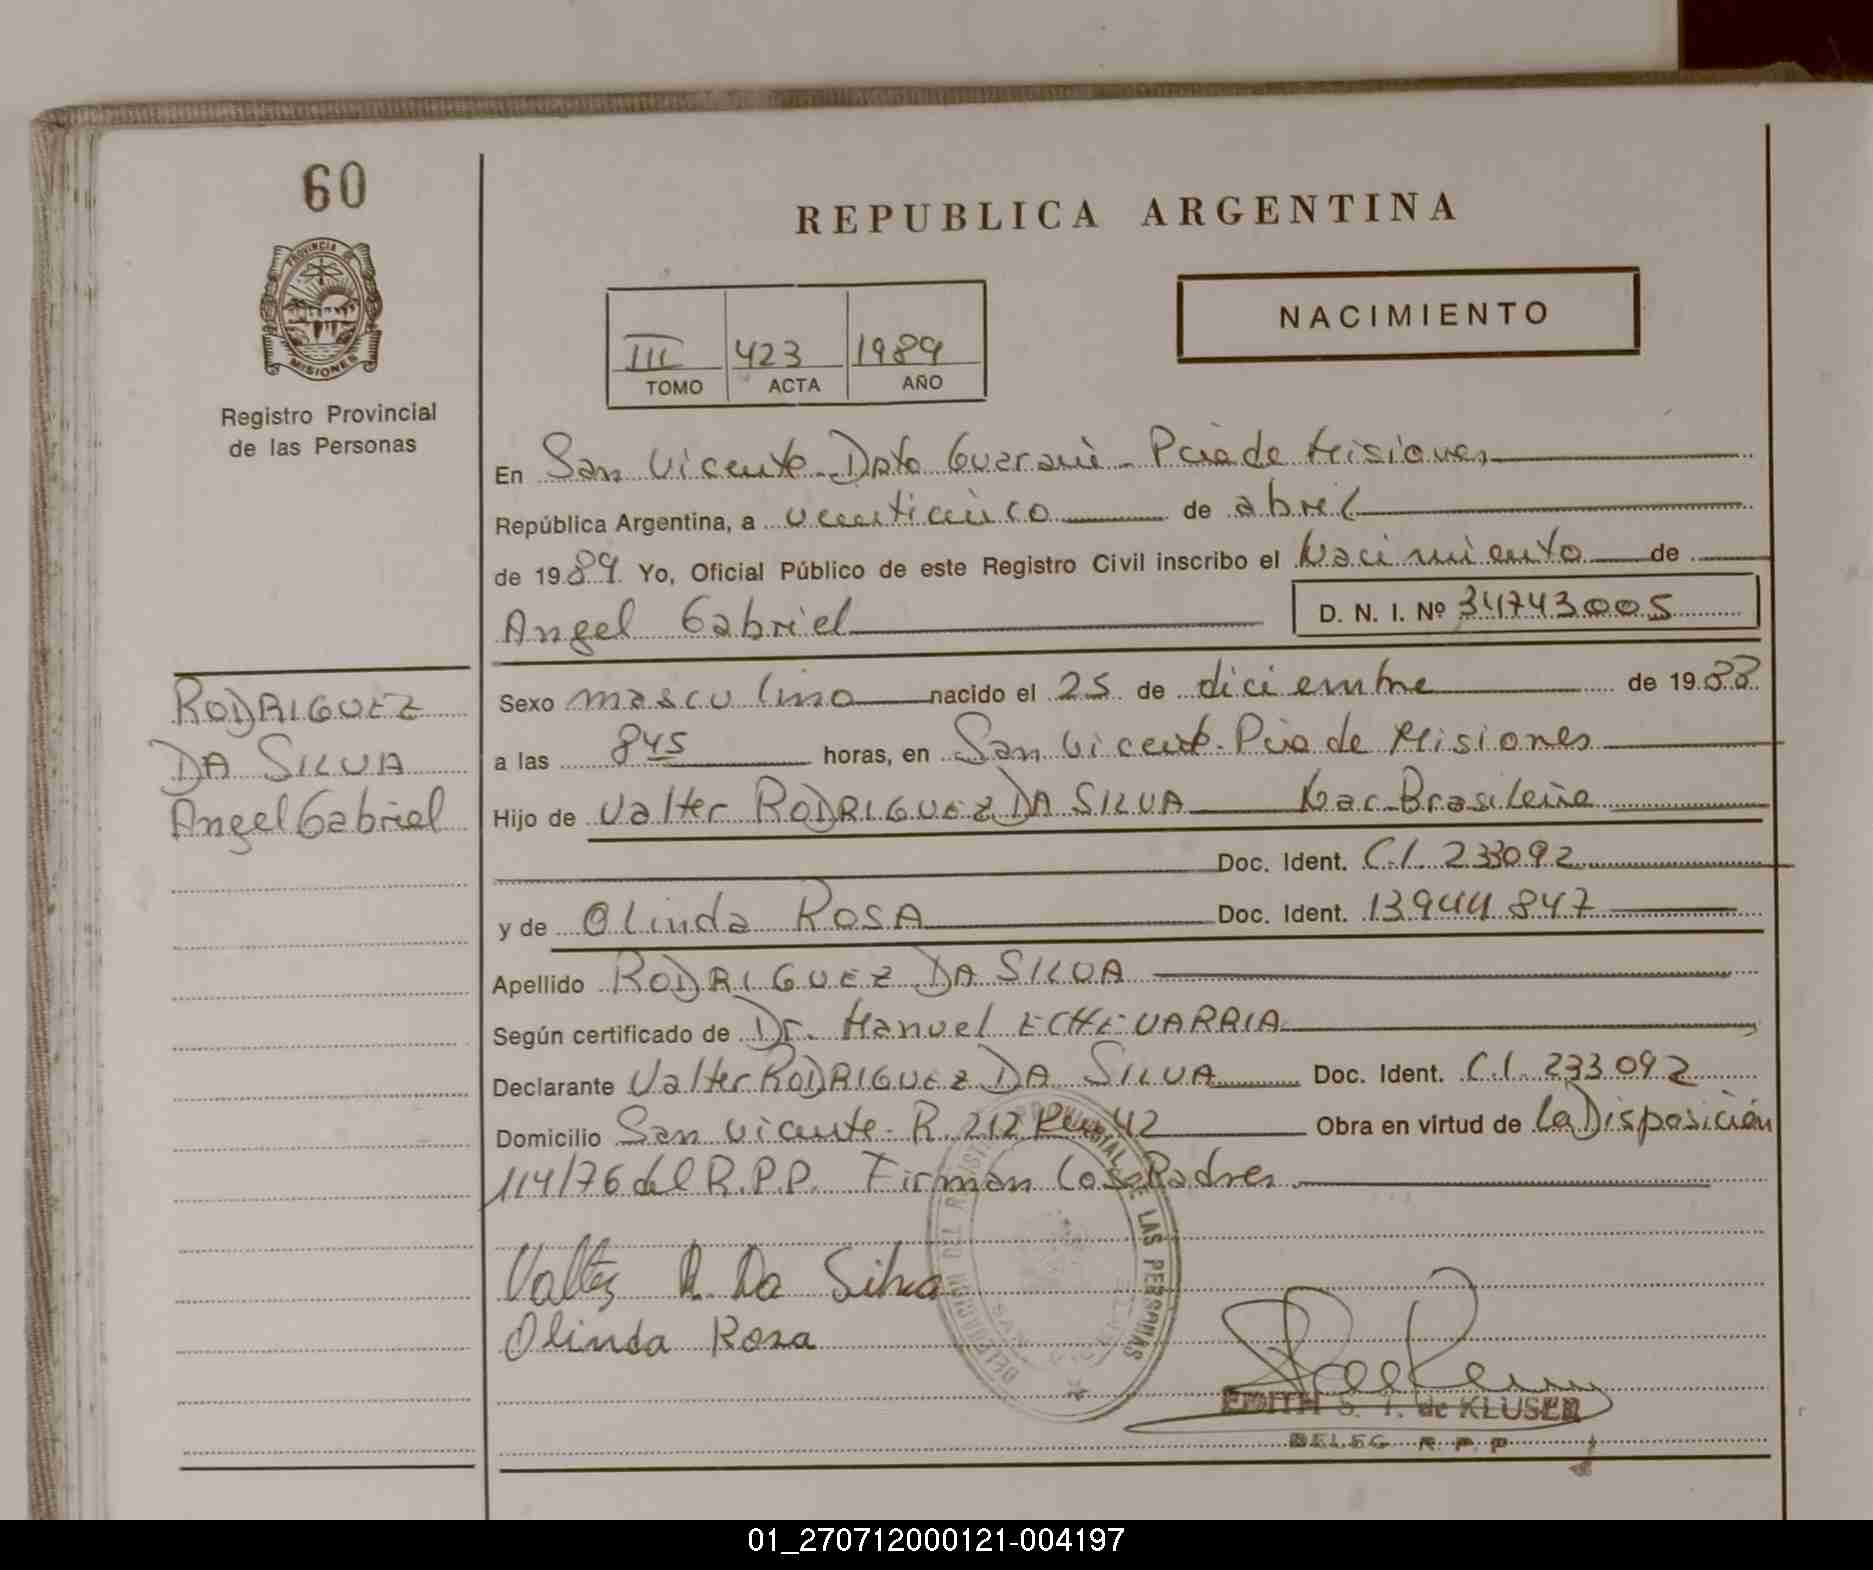 60
PROVINCIA
MISIONES
Registro Provincial
de las Personas
REPUBLICA ARGENTINA
NACIMIENTO
III 423 1989
TOMO ACTA AÑO
En San Vicente Dpto Guaraní - Pcia de Misiones
República Argentina, a veinticinco de abril
de 1989 Yo, Oficial Público de este Registro Civil inscribo el Nacimiento de
Angel Gabriel D. N. I. Nº 34743005
RODRIGUEZ
DA SILVA
Angel Gabriel
Sexo masculino nacido el 25 de diciembre de 1988
a las 845 horas, en San Vicente - Pcia de Misiones
Hijo de Valter RODRIGUEZ DA SILVA Nac. Brasileña
Doc. Ident. C.I. 233092
y de Olinda ROSA Doc. Ident. 13944847
Apellido RODRIGUEZ DA SILVA
Según certificado de Dr. Manuel ECHEVARRIA
Declarante Valter RODRIGUEZ DA SILVA Doc. Ident. C.I. 233092
Domicilio San Vicente - R. 212 Km 42 Obra en virtud de La Disposición
114/76 del R.P.P. Firman Los Padres
Valter R. Da Silva
Olinda Rosa
DELEGACION DEL REGISTRO PROVINCIAL DE LAS PERSONAS
EDITH S. T. de KLUSER
DELEG R P P
01_270712000121-004197